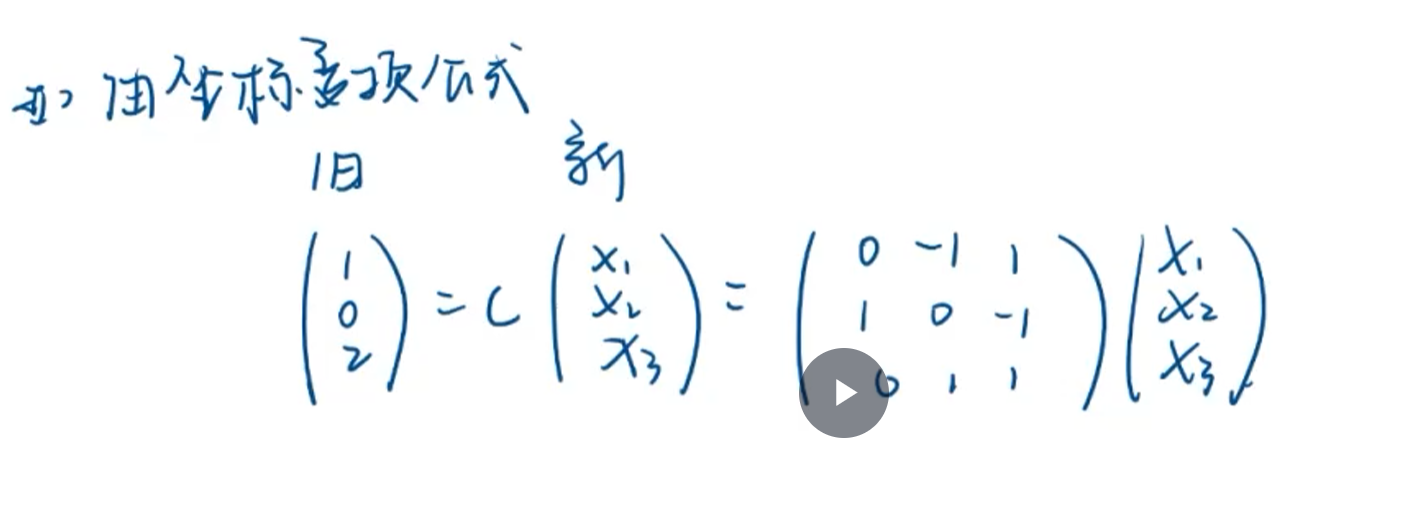 由坐标变换公式
旧 新
( 1 0 2 ) = C ( x₁ x₂ x₃ ) = ( 0 -1 1 1 0 -1 0 1 1 ) ( x₁ x₂ x₃ )